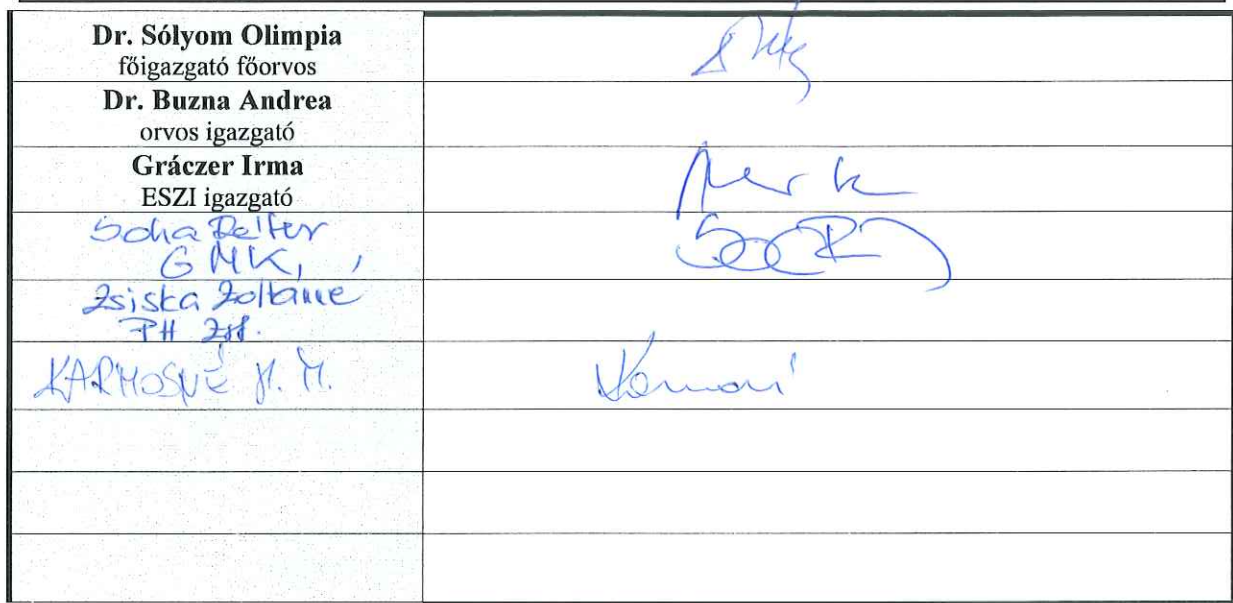 Dr. Sólyom Olimpia
főigazgató főorvos
Dr. Buzna Andrea
orvos igazgató
Gráczer Irma
ESZI igazgató
Soha Péter
GMK,
Zsiska Zoltánné
PH
KARMOSNÉ H. M.